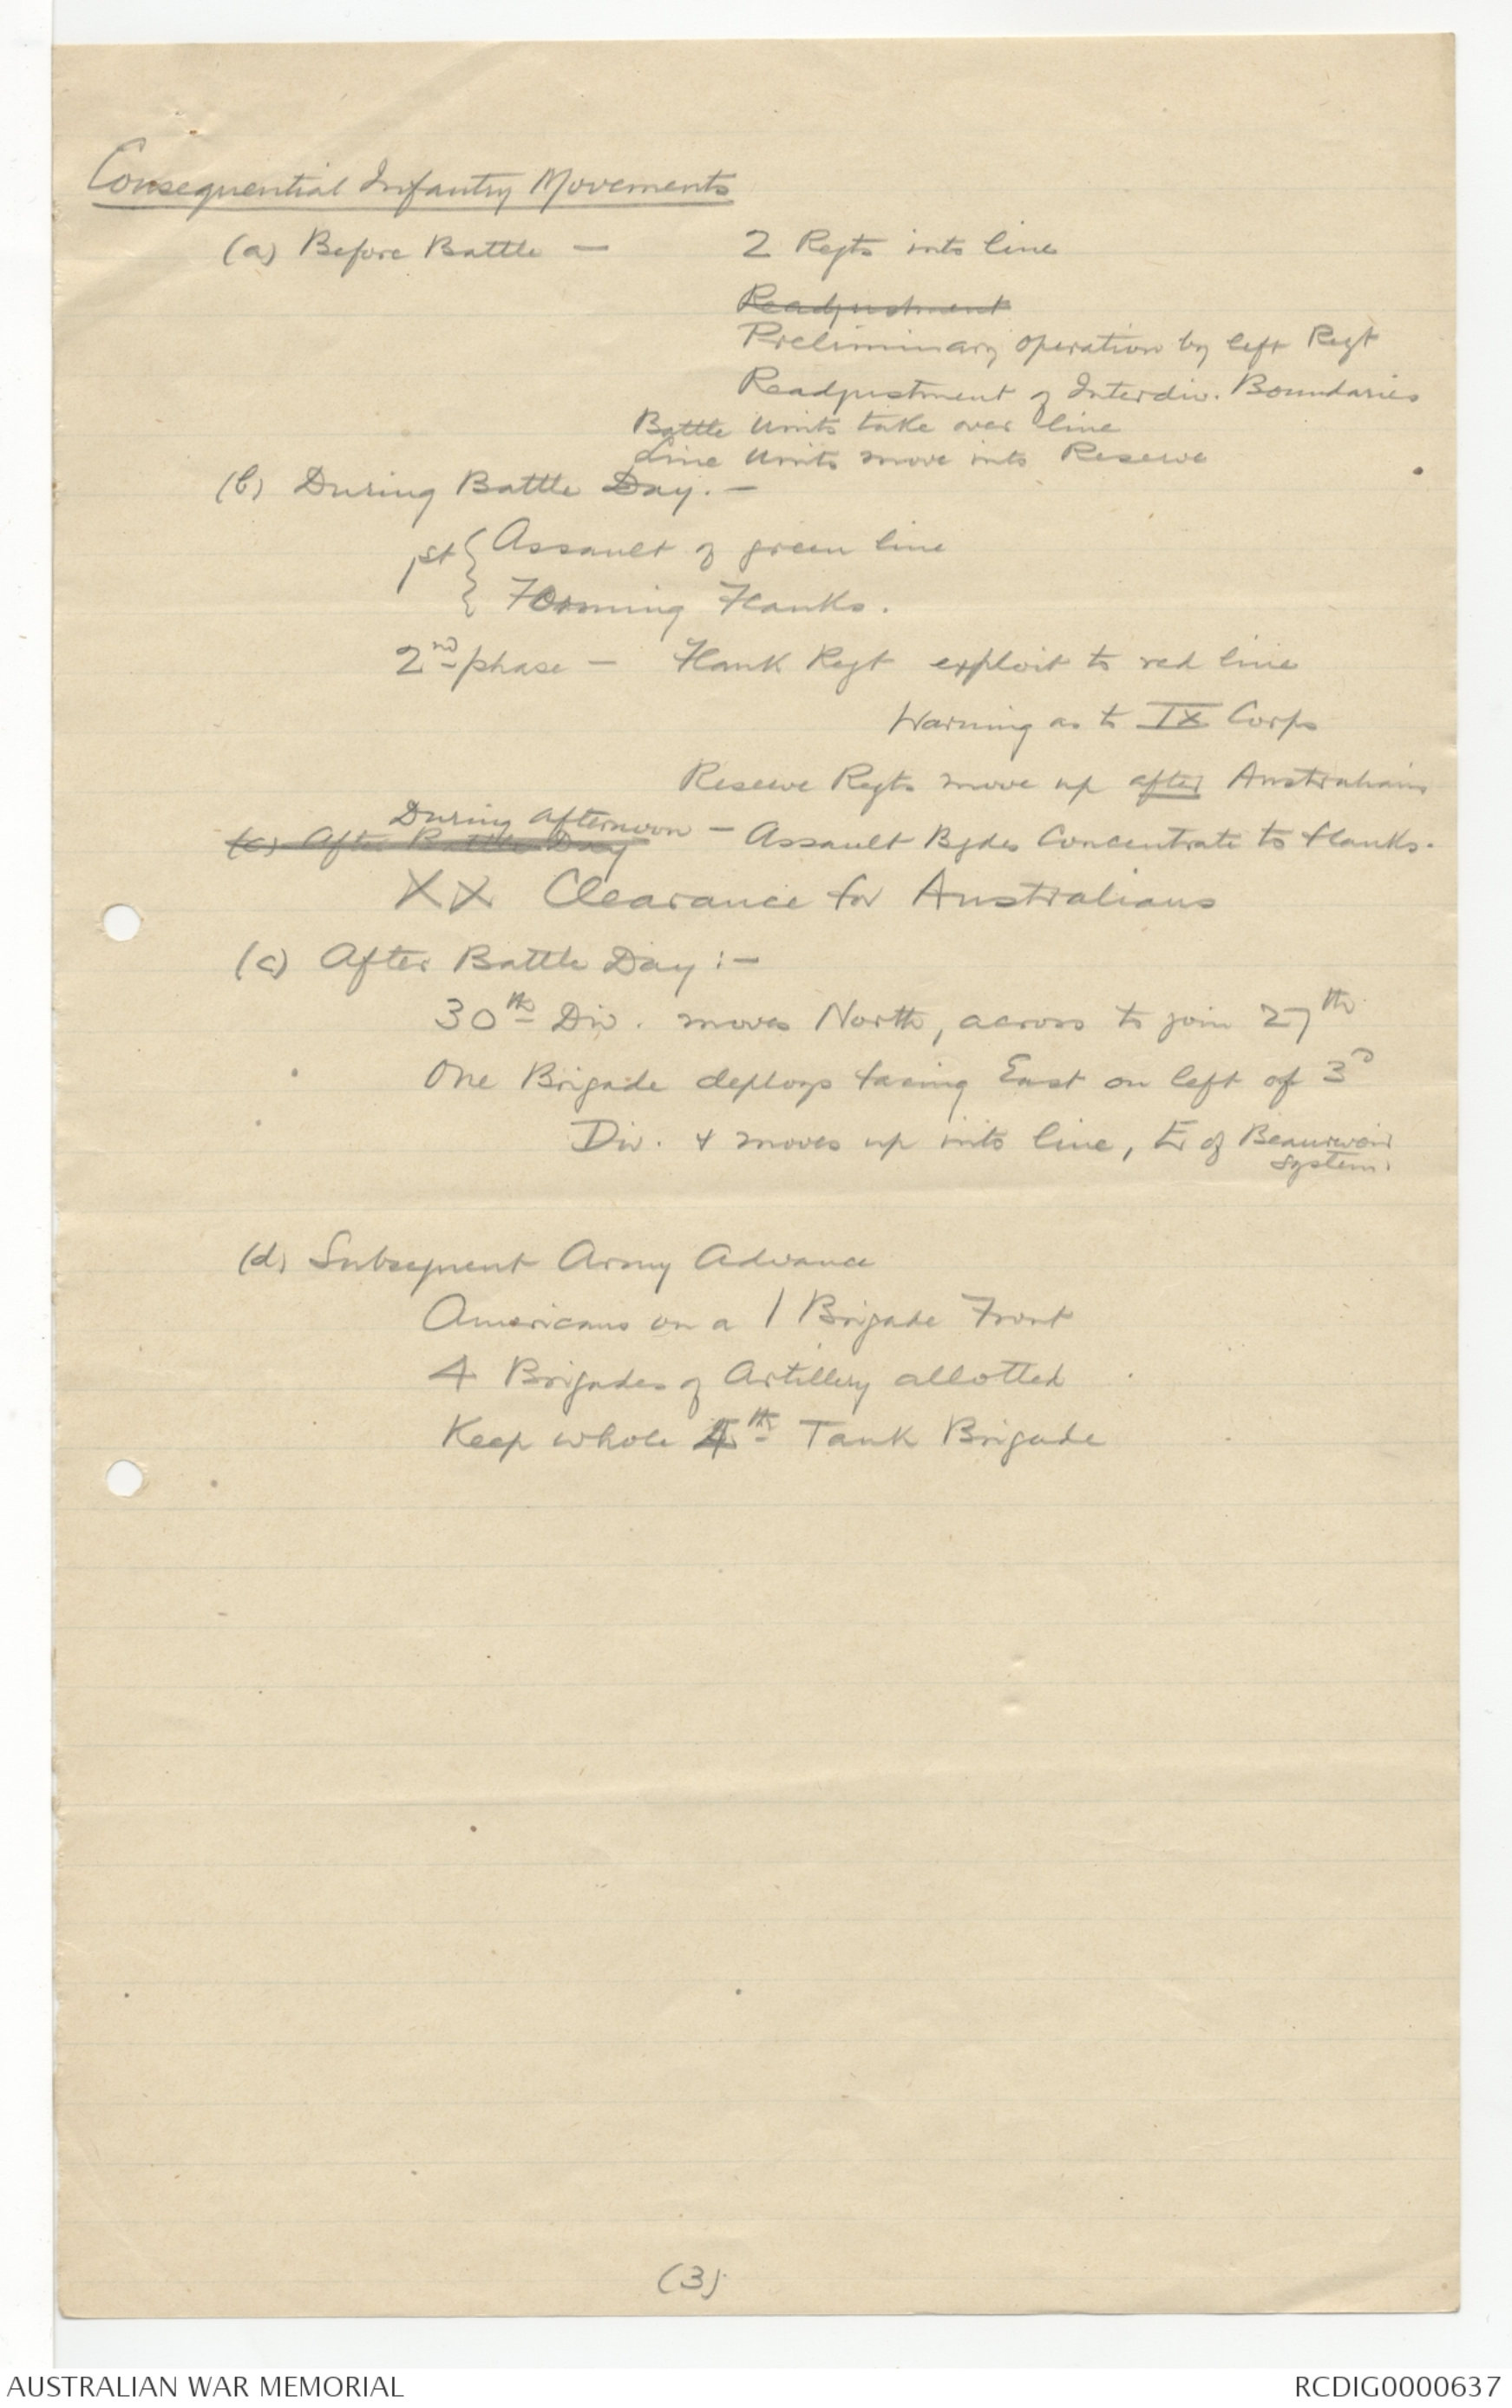 Consequential Infantry Movements
(a) Before Battle — 2 Regts into line
Readjustment
Preliminary operation by left Regt
Readjustment of Interdiv. Boundaries
Battle Units take over line
Line Units move into Reserve
(b) During Battle Day. —
1st { Assault of green line
Forming Flanks.
2nd phase — Flank Regt exploit to red line
Warning as to IX Corps
Reserve Regts move up after Australians
During afternoon — Assault Bgdes Concentrate to flanks.
(c) After Battle Day
XX Clearance for Australians
(c) After Battle Day :—
30th Div. moves North, across to join 27th
One Brigade deploys facing East on left of 3D
Div. & moves up into line, E of Beaurevoir
system.
(d) Subsequent Army Advance
Americans on a 1 Brigade Front
4 Brigades of Artillery allotted
Keep whole 4th Tank Brigade
(3)
AUSTRALIAN WAR MEMORIAL
RCDIG0000637